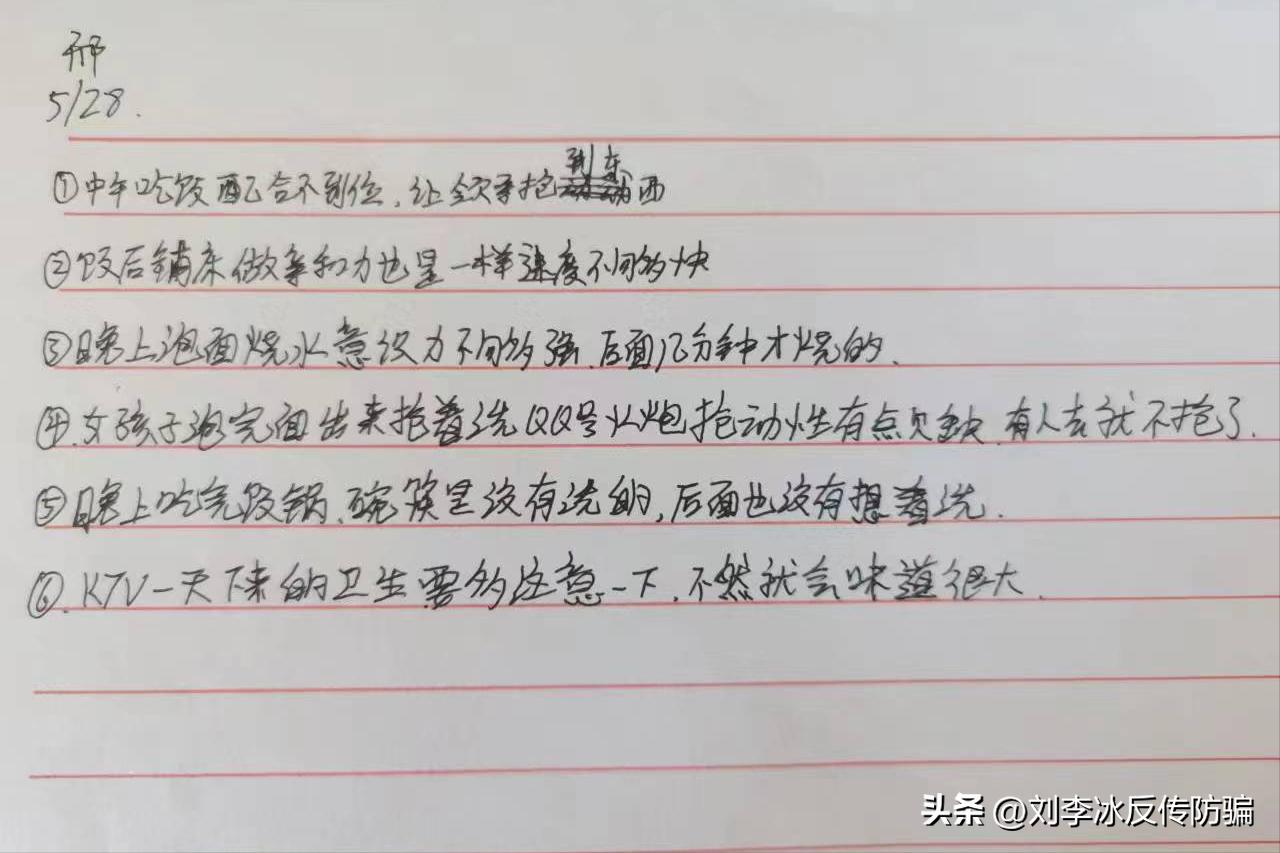 邢
5/28.
①中午吃饭配合不到位,让家抢到东西
②饭后铺床做亲和力也是一样速度不够快
③晚上泡面烧水意识力不够强、后面几分钟才烧的.
④.女孩子泡完面出来抢着洗QQ号火炮抢动性有点欠缺.有人去我不抢了.
⑤晚上吃完饭锅、碗筷是没有洗的,后面也没有想着洗.
⑥.KTV一天下来的卫生要多注意一下.不然就会味道很大.
头条 @刘李冰反传防骗